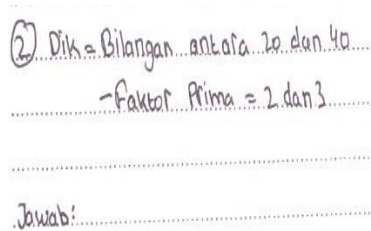 ② Dik = Bilangan antara 20 dan 40
- Faktor Prima = 2 dan 3
Jawab: